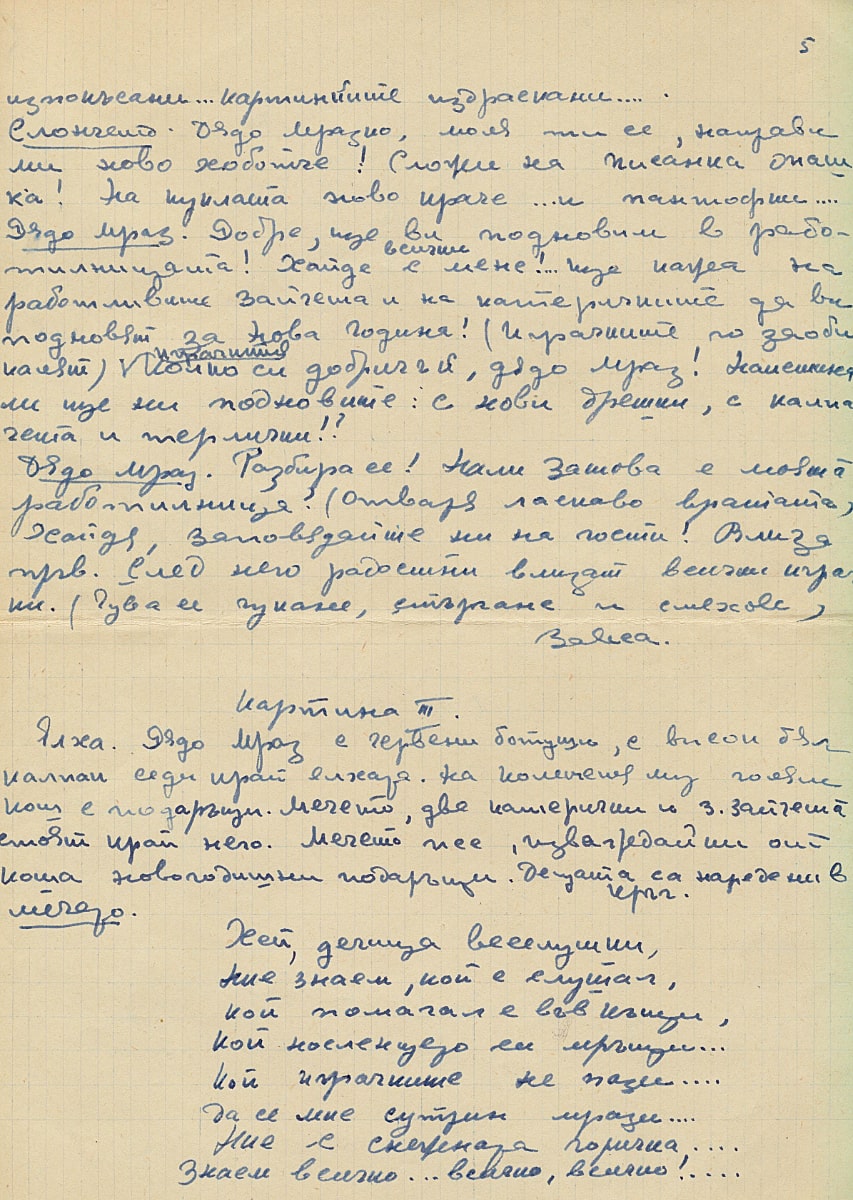 5
изпокъсани... картинките издраскани....
Слончето. Дядо Мразко, моля ти се, направи
ми ново хоботче! Сложи на писанка опаш
ка! На куклата ново краче ...и пантофки....
Дядо Мраз. Добре, ще ви подновим в рабо-
тилницата! Хайде всички с мене!... Ще кажа на
работливите зайчета и на катеричките да ви
подновят за Нова Година! (Играчките го заоби
калят) Играчките Колко си добричък, дядо Мраз! Наистина
ли ще ни подновите: с нови дрешки, с калпа
чета и терлички!?
Дядо Мраз. Разбира се! Нали затова е моята
работилница! (Отваря ласкаво вратата)
Хайде, заповядайте ни на гости! Влиза
пръв. След него радостни влизат всички играч
ки. (Чува се чукане, стъргане и смехове)
Завеса.
Картина III.
Елха. Дядо Мраз с червени ботуши, с висок бял
калпак седи край елхата. На коленете му голям
кош с подаръци. Мечето, две катерички и 3. зайчета
стоят край него. Мечето пее, изваждайки от
коша новогодишни подаръци. Децата са наредени в
кръг.
Мечето.
Хей, дечица веселушки,
Ние знаем, кой е слушал,
Кой помагал е във къщи,
Кой носленцето си мръщи...
Кой играчките не пази....
Да се мие сутрин мрази....
Ние с снежната горичка,....
Знаем всичко... всичко, всичко!....